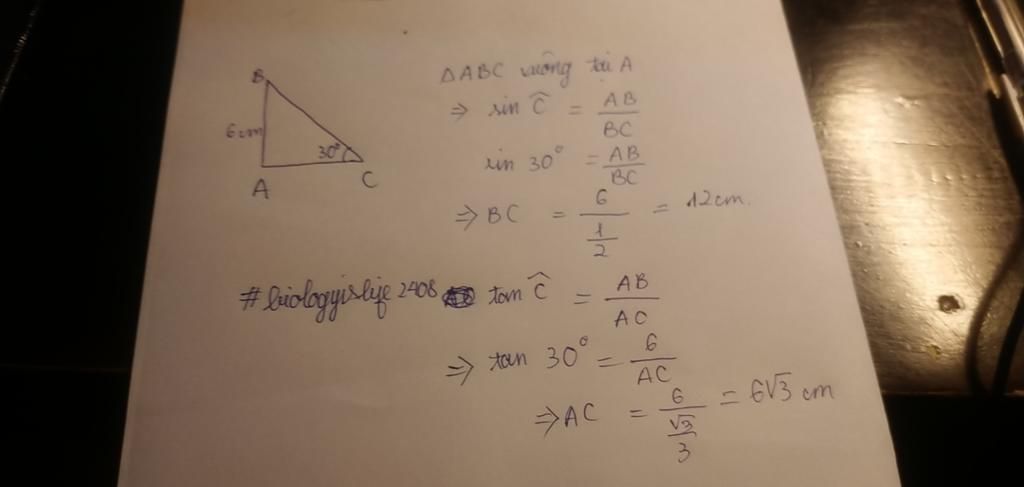 B
6cm
30°
A
C
ΔABC vuông tại A
⇒ sin Ĉ = AB/BC
sin 30° = AB/BC
⇒ BC = 6/(1/2) = 12cm.
#biologyislife2408
tan Ĉ = AB/AC
⇒ tan 30° = 6/AC
⇒ AC = 6/(√3/3) = 6√3 cm